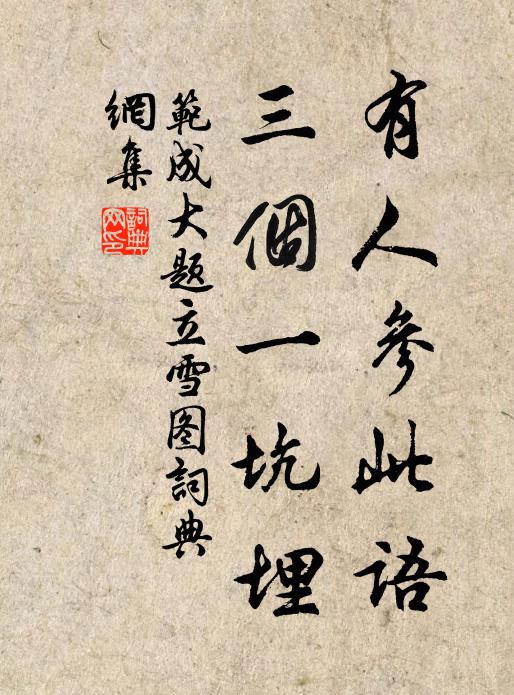 有人參此語
三個一坑埋
範成大题立雪图詞典
網集
詞典
网印